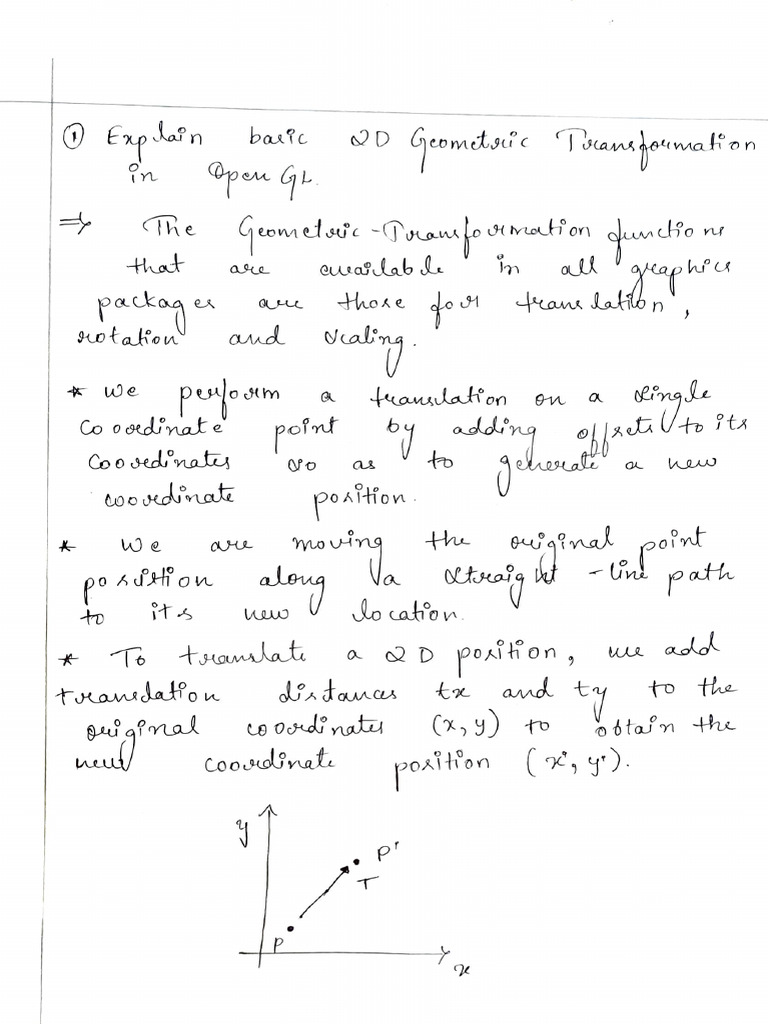 ① Explain basic 2D Geometric Transformation
in OpenGL.
⇒ The Geometric-Transformation functions
that are available in all graphics
packages are those for translation,
rotation and scaling.
* We perform a translation on a single
coordinate point by adding offsets to its
coordinates so as to generate a new
coordinate position.
* We are moving the original point
position along a straight-line path
to its new location.
* To translate a 2D position, we add
translation distances tx and ty to the
original coordinates (x, y) to obtain the
new coordinate position (x', y').
y
P'
T
P
x